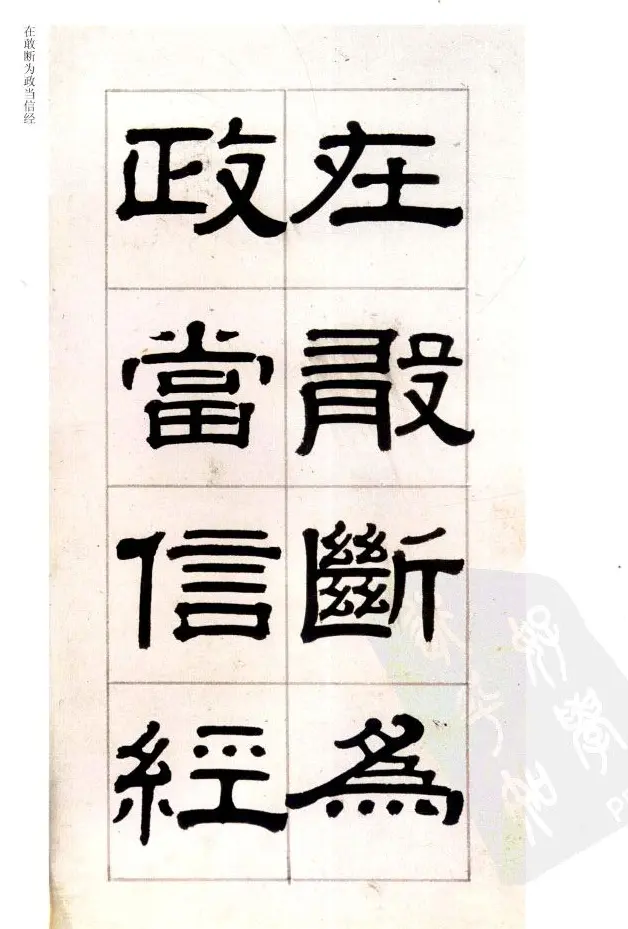 在敢断为政当信经
在敢斷為
政當信經